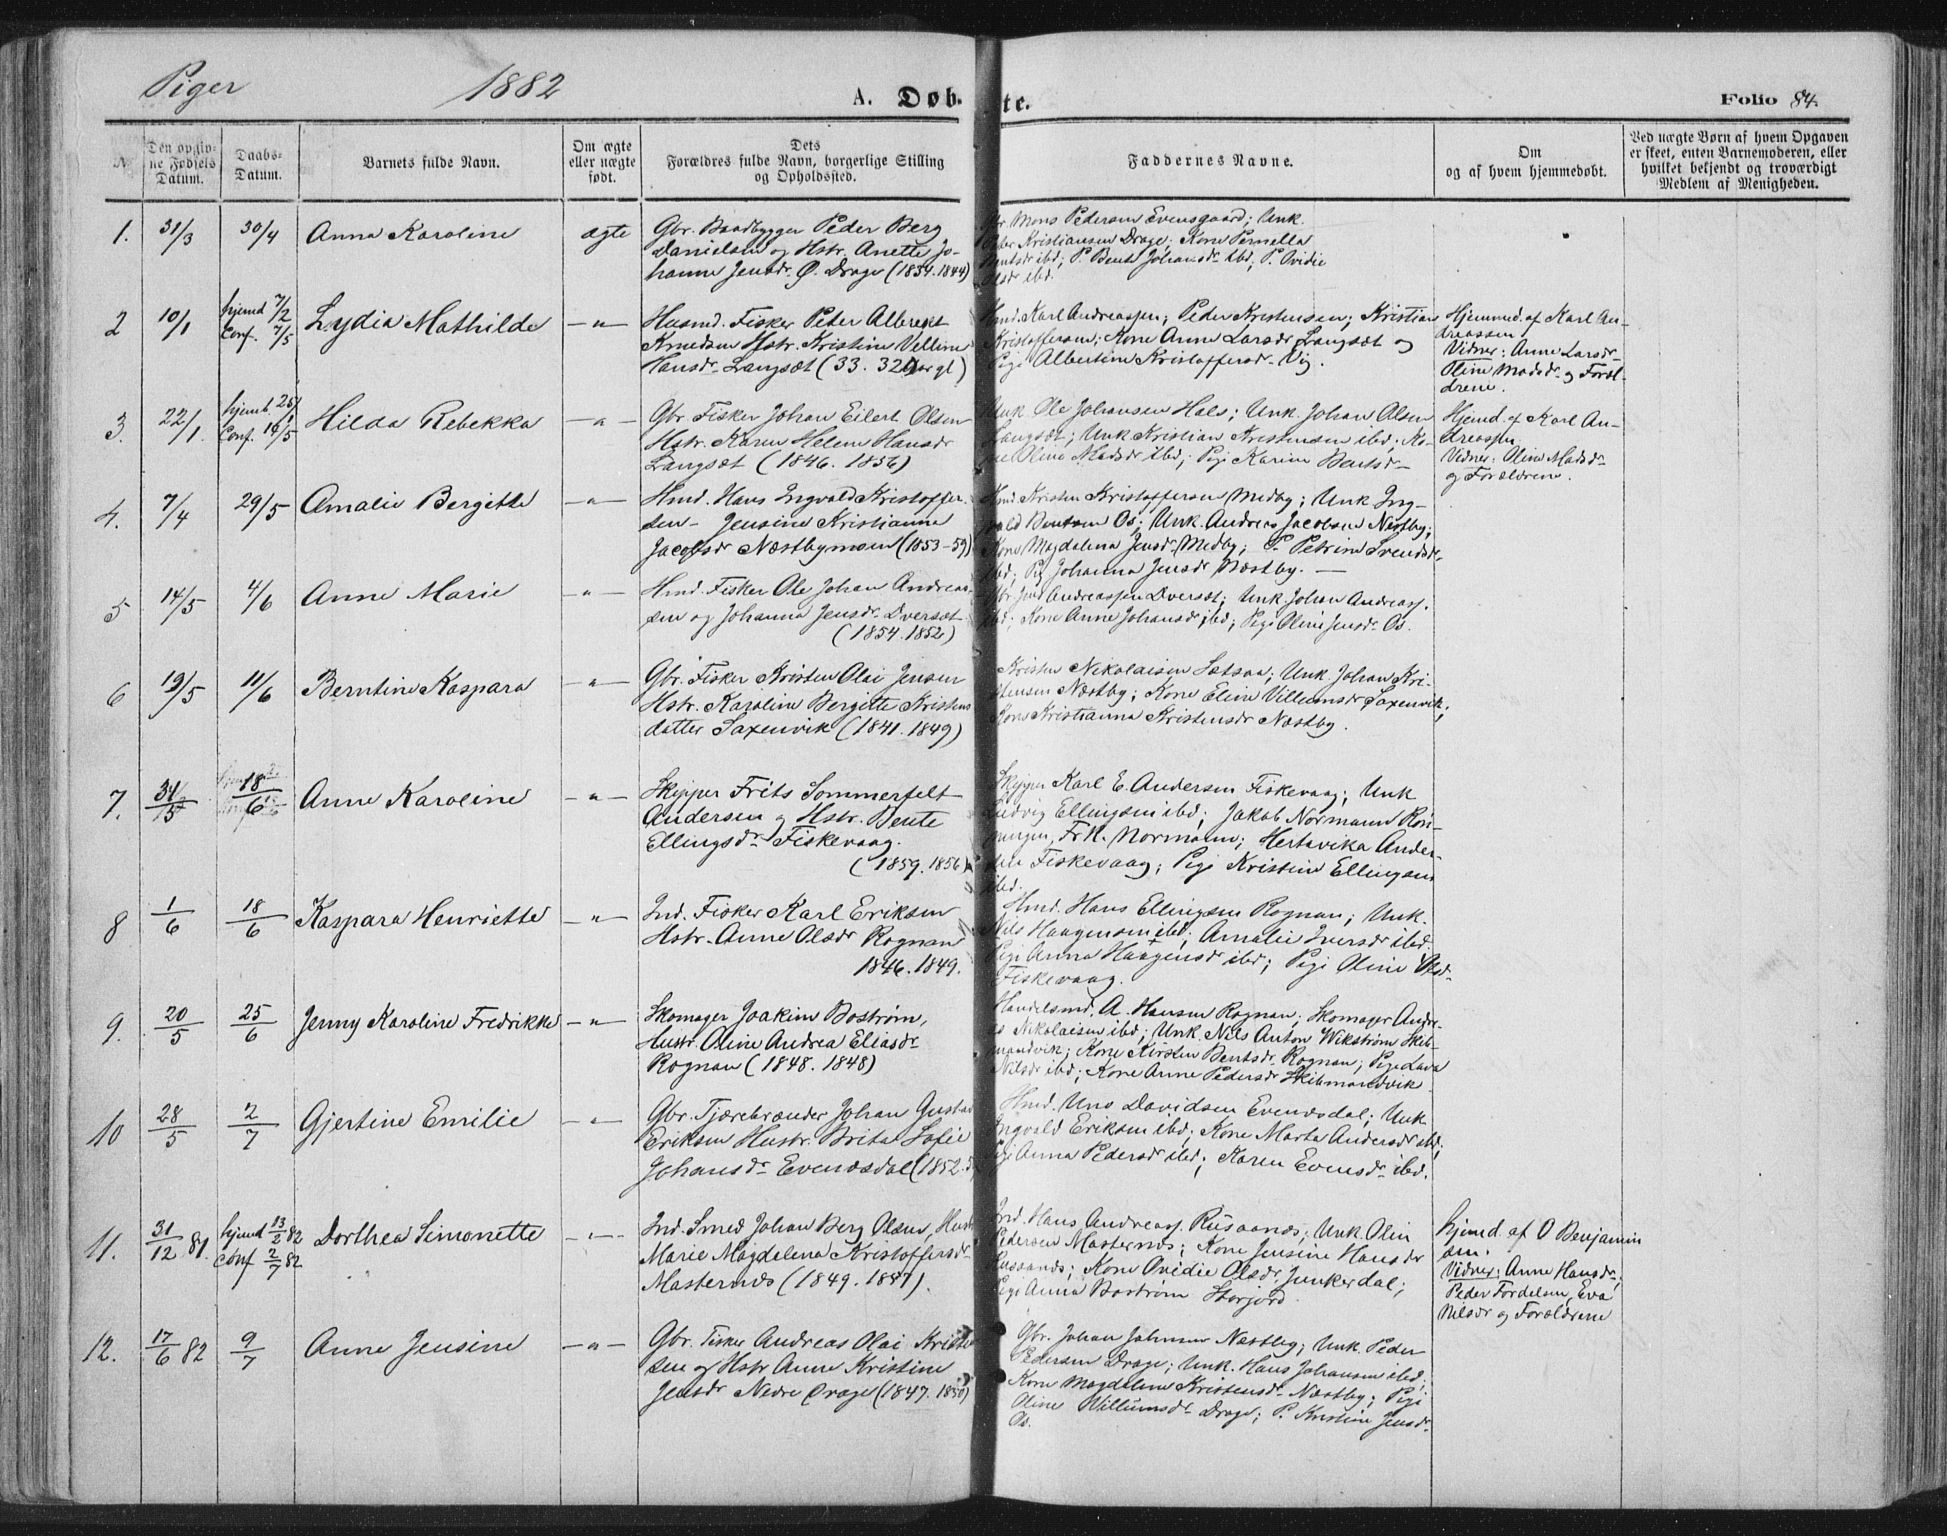 Piger 1882 A. Døb- te. Folio 84.
No. Den opgiv- ne Fødsels Datum. Daabs- Datum. Barnets fulde Navn. Om ægte eller uægte født. Dets Forældres fulde Navn, borgerlige Stilling og Opholdssted. Faddernes Navne. Om og af hvem hjemmedøbt. Ved uægte Børn af hvem Opgaven er skeet, enten Barnemoderen, eller hvilket bekjendt og troværdigt Medlem af Menigheden.
1. 31/3 30/4 Anna Karoline ægte
Gbr. Baadbygger Peder Berg
Danielsen og Hstr. Anette Jo-
hanna Jensdr. Ø. Drage (1854.1844)
Gbr Mons Pedersen Evensgaard; Unk.
Peder Kristiansen Drage; Kone Pernella
Bentsdr ibd; P. Bente Johansdr ibd; P. Ovidie
Olsdr ibd.
2 10/1 hjemd 7/2 Conf. 7/5 Lydia Mathilde -"-
Husmd. Fisker Peter Albrekt
Knudsen Hstr. Kristine Velline
Hansdr Langsæt (33. 32 Aar gl)
Hmd. Karl Andreassen; Peder Kristensen; Kristian
Kristoffersen; Kone Anne Larsdr Langsæt og
Pige Albertine Kristoffersdr Vig.
Hjemmed. af Karl An-
dreassen
Vidner: Anne Larsdr
Oline Madsdr og Foræl-
drene.
3. 22/1. hjemb. 25/1 Conf. 16/5 Hilda Rebekka -"-
Gbr. Fisker Johan Eilert Olsen
Hstr. Karen Helene Hansdr
Langsæt (1846. 1856)
Unk. Ole Johansen Hals; Unk. Johan Olsen
Langsæt; Unk Kristian Kristensen ibd; Ko-
ne Oline Madsdr ibd; Pige Karine Bentsdr
Hjemd. af Karl An-
dreassen
Vidner: Oline Madsdr
og Forældrene.
4. 7/4 29/5 Amalie Bergitte -"-
Hmd. Hans Ingvald Kristoffer-
sen - Jensine Kristianna
Jacobsdr Næstbymoen (1853-59)
Hmd. Kristen Kristoffersen Medby; Unk Ing-
vald Bentsen Os; Unk. Andreas Jacobsen Næstby;
Kone Magdalena Jensdr Medby; P. Petrine Svendsdr
ibd; Pig Johanna Jensdr Næstby. -
5 14/5 4/6 Anne Marie -"-
Hmd. Fisker Ole Johan Andreas-
sen og Johanna Jensdr Dversæt
(1854. 1852)
Gbr. Jens Andreassen Dversæt; Unk. Johan Andreass.
ibd; Kone Anne Johansdr ibd; Pige Oline Jensdr Os.
6 19/5 11/6 Berntine Kaspara -"-
Gbr. Fisker Kristen Olai Jensen
Hstr. Karoline Bergitte Kristens
datter Saxenvik (1841. 1849)
Kristen Nikolaisen Setsaa; Unk Johan Kri-
stensen Næstby; Kone Eline Villumsdr Saxenvik;
Kone Kristianna Kristensdr Næstby.
7. 31/5 18/6 Anne Karoline -"-
Skipper Frits Sommerfelt
Andersen og Hstr. Bente
Ellingsdr Fiskevaag.
(1859. 1856)
Skipper Karl E. Andersen Fiskevaag; Unk
Ludvig Ellingsen ibd; Jakob Normann
Frk. Normann; Hertavika Ander-
sen Fiskevaag; Pige Kristine Ellingsen
ibd.
8 1/6 18/6 Kaspara Henriette -"-
Ind. Fisker Karl Eriksen
Hstr. Anne Olsdr Rognan
1846. 1849.
Hmd. Hans Ellingsen Rognan; Unk.
Nils Haagensen ibd; Amalie Iversdr ibd.
Pige Anna Haagensdr ibd; Pige Oline Olsdr
Fiskevaag.
9. 20/5 25/6 Jenny Karoline Fredrikke -"-
Skomager Joakim Boström,
Hustr. Oline Andrea Eliasdr
Rognan (1848. 1848)
Handelsmd. A. Hansen Rognan; Skomager Andre-
as Nikolaisen ibd; Unk. Nils Anton Wikström Skib-
mandvik; Kone Kirsten Bentsdr Rognan; Pige Lava
Nilsdr ibd; Kone Anne Pedersdr Skibmandvik
10 28/5 2/7 Gjertine Emilie -"-
Gbr. Tjærebrænder Johan Gustav
Eriksen Hustr. Brita Sofie
Johansdr Evenæsdal (1852.
Hmd. Uno Davidsen Evenæsdal; Unk
Ingvald Eriksen ibd; Kone Marta Andersdr ibd;
Pige Anna Pedersdr ibd; Karen Evensdr ibd.
11. 31/12 81. hjemd 13/2 82 Conf 2/7 82 Dorthea Simonette -"-
Ind. Smed Johan Berg Olsen, Hustr
Marie Magdelena Kristoffersdr
Masternæs (1849. 1857).
Ind. Hans Andreass. Rusaanæs; Unk. Olin
Pedersen Masternæs; Kone Jensine Hansdr
Russaanæs; Kone Ovidie Olsdr Junkerdal;
Pige Anna Boström Storjord.
hjemd. af O Benjamin
sen.
Vidner: Anne Hansdr;
Peder Fordelsen, Eva
Nilsdr og Forældrene
12. 17/6 82 9/7 Anne Jensine -"-
Gbr. Fisker Andreas Olai Kristen
sen og Hstr Anne Kristine
Jensdr Nedre Drage (1847. 1850)
Gbr. Johan Johnsen Næstby; Unk. Peder
Pedersen Drage; Unk. Hans Johansen ibd;
Kone Magdeline Kristensdr Næstby; Pige
Oline Willumsdr Drage; P. Kristine Jensdr
Os.